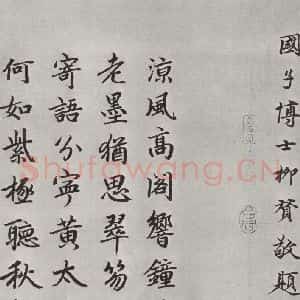 國子博士柳贇敬題
涼風高閣響鐘
老墨猶思翠笏
寄語分寧黃太
何如紫極聽秋
Shufawang.CN